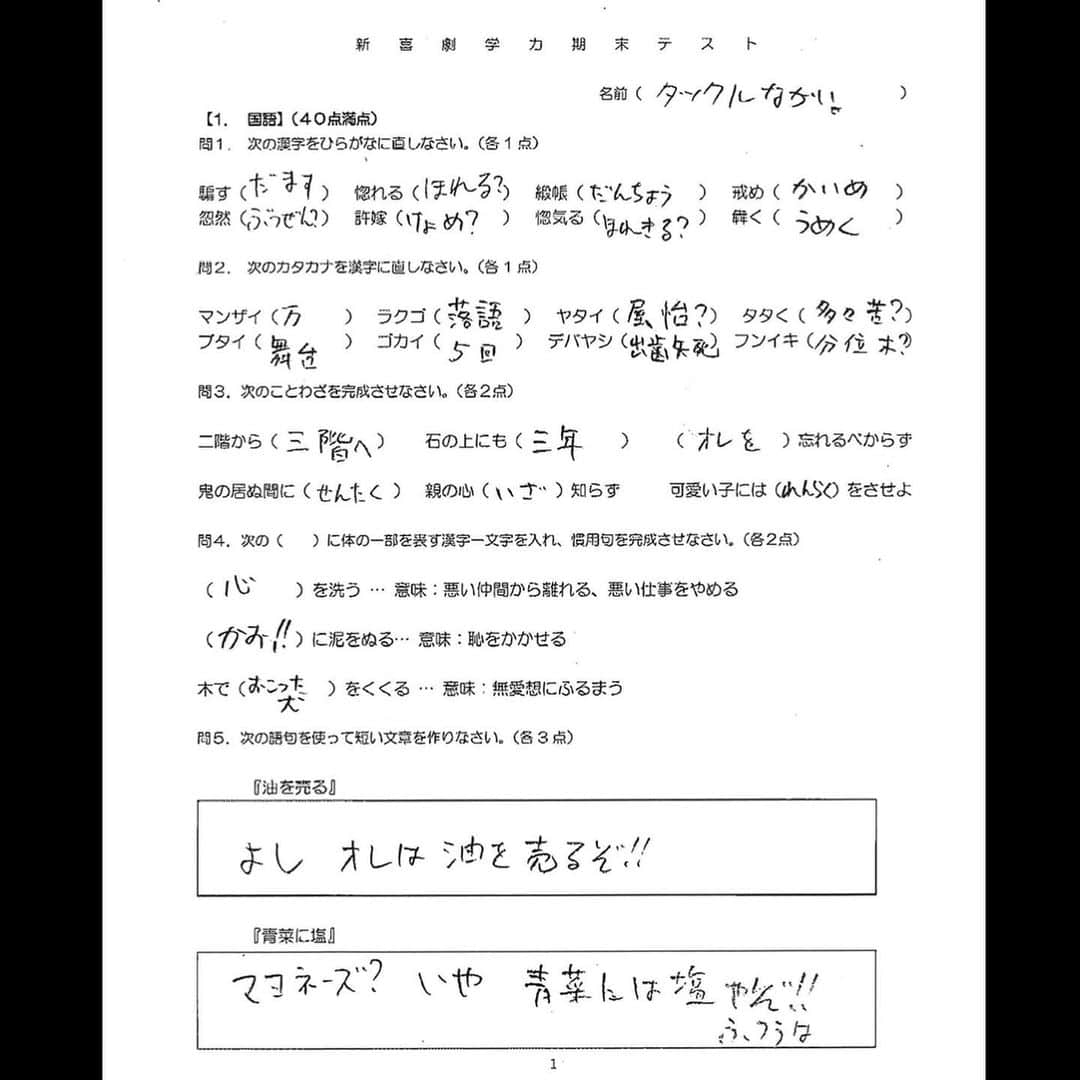 新喜劇学力期末テスト
名前（ タックルなかい。 ）
【1. 国語】（40点満点）
問1. 次の漢字をひらがなに直しなさい。（各1点）
騙す（だます） 惚れる（ほれる？） 緞帳（だんちょう） 戒め（かいめ）
忽然（ぶつぜん？） 許嫁（けよめ？） 惚気る（ほれきる？） 犇く（うめく）
問2. 次のカタカナを漢字に直しなさい。（各1点）
マンザイ（万 ） ラクゴ（落語） ヤタイ（屋怡？） タタく（多々苦？）
ブタイ（舞台） ゴカイ（5回） デバヤシ（出歯矢死） フンイキ（分位木？）
問3. 次のことわざを完成させなさい。（各2点）
二階から（三階へ） 石の上にも（三年） （オレを）忘れるべからず
鬼の居ぬ間に（せんたく） 親の心（いざ）知らず 可愛い子には（れんらく）をさせよ
問4. 次の（ ）に体の一部を表す漢字一文字を入れ、慣用句を完成させなさい。（各2点）
（心 ）を洗う … 意味：悪い仲間から離れる、悪い仕事をやめる
（かお!!）に泥をぬる… 意味：恥をかかせる
木で（おこった犬）をくくる … 意味：無愛想にふるまう
問5. 次の語句を使って短い文章を作りなさい。（各3点）
『油を売る』
よし オレは 油を売るぞ!!
『青菜に塩』
マヨネーズ？ いや 青菜には塩やぞ!!
ふつうは
1